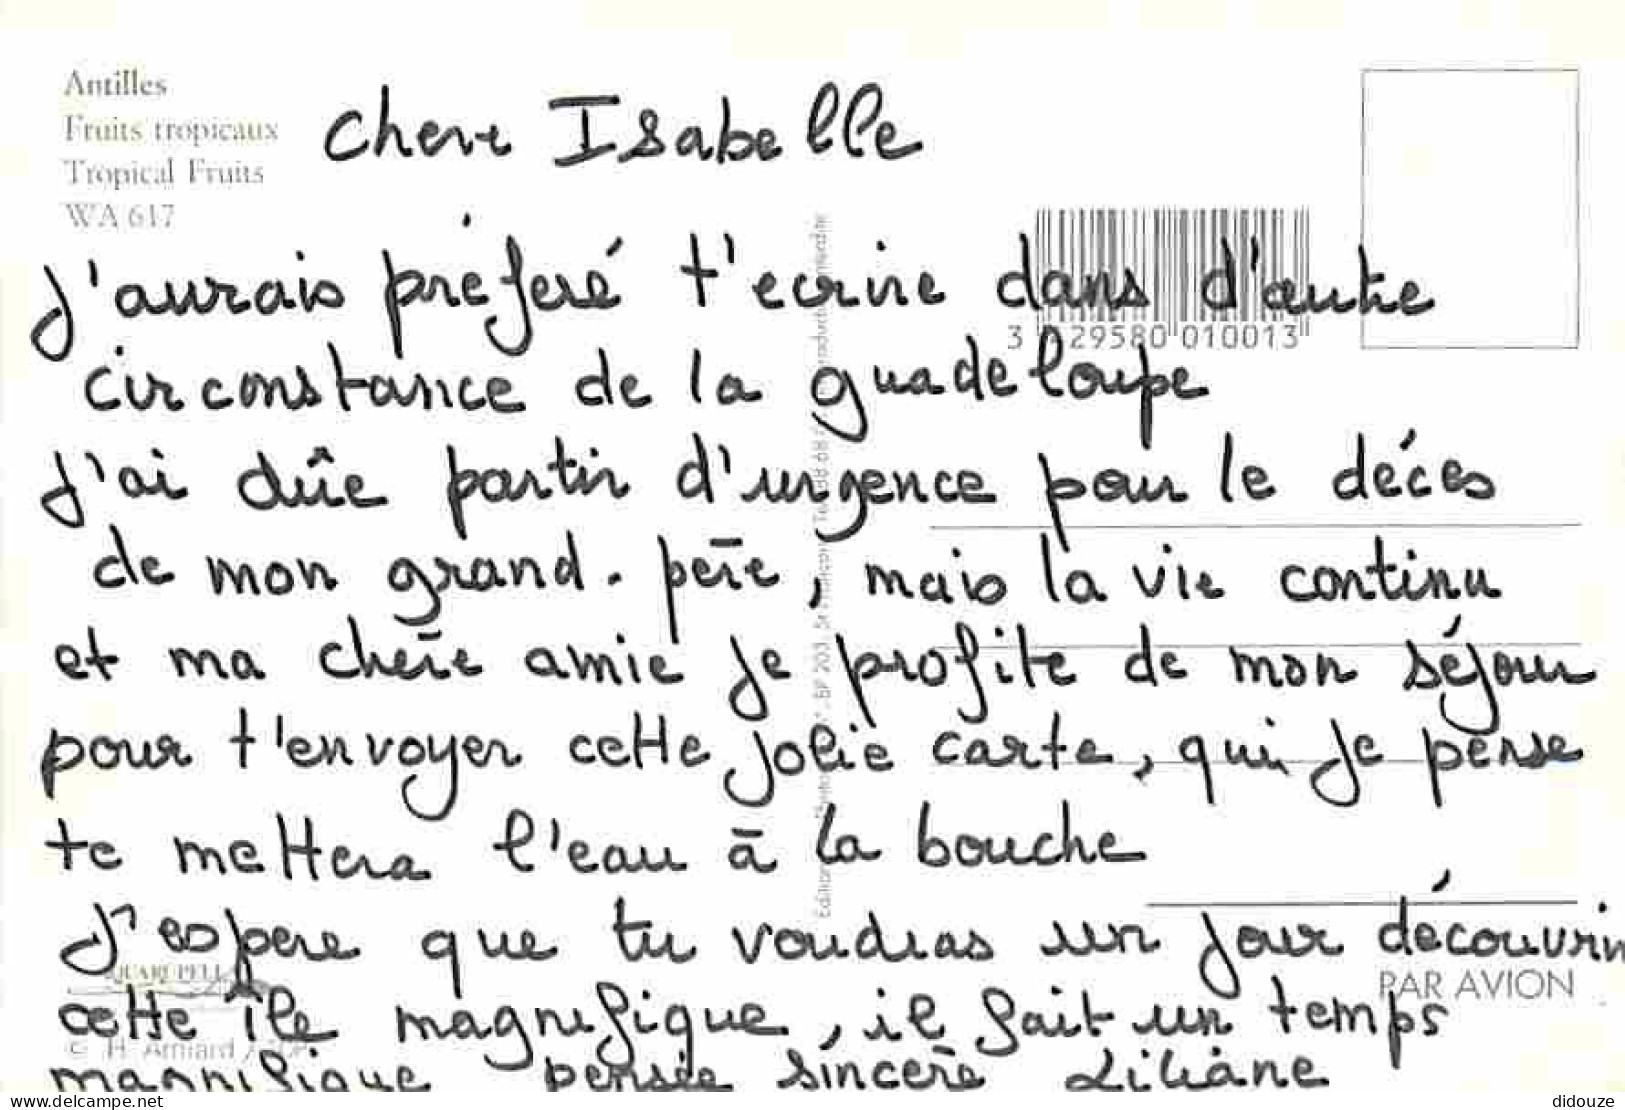 Antilles
Fruits tropicaux
Tropical Fruits
WA 617
Chere Isabelle
J'aurais préferé t'ecrire dans d'autre
circonstance de la guadeloupe
J'ai dûe partir d'urgence pour le décés
de mon grand-père, mais la vie continu
et ma chère amie je profite de mon séjour
pour t'envoyer cette jolie carte, qui je pense
te mettera l'eau à la bouche
J'espere que tu voudras un jour découvrir
cette île magnifique, il fait un temps
magnifique pensée sincère Liliane
3 29580 010013
PAR AVION
© H. Amiard
www.delcampe.net
didouze